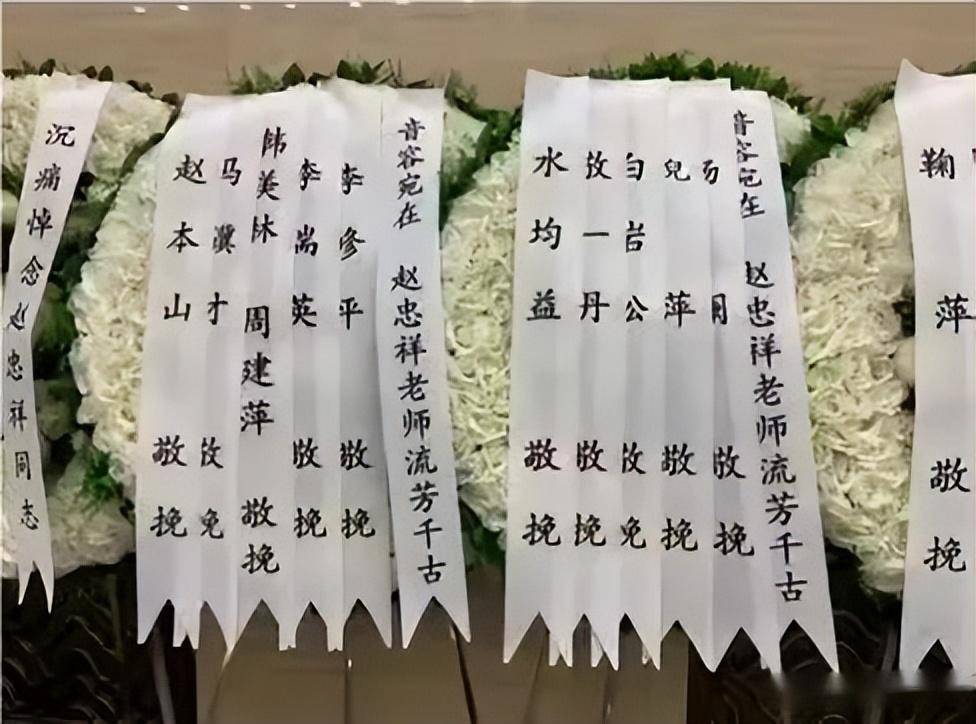 沉痛悼念赵忠祥同志
赵本山 敬挽
马冀才
韩美林 周建萍 敬挽
李嵩英 敬挽
李修平 敬挽
音容宛在 赵忠祥老师流芳千古
水均益 敬挽
敬一丹 敬挽
白岩公 敬挽
倪萍 敬挽
敬挽
音容宛在 赵忠祥老师流芳千古
鞠萍 敬挽